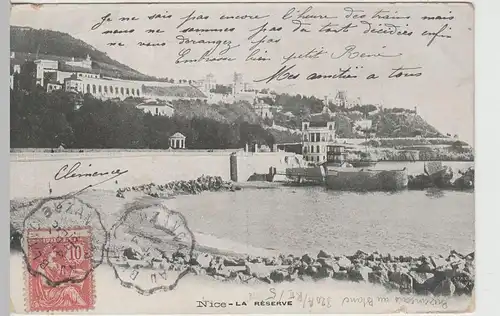 Je ne sais pas encore l'heure des trains mais
nous ne sommes pas du tout décidées enfin
ne vous derangez pas
Embrasse bien petit René
Mes amitiés à tous
Clémence
10
Nice - LA RÉSERVE
au Blanc